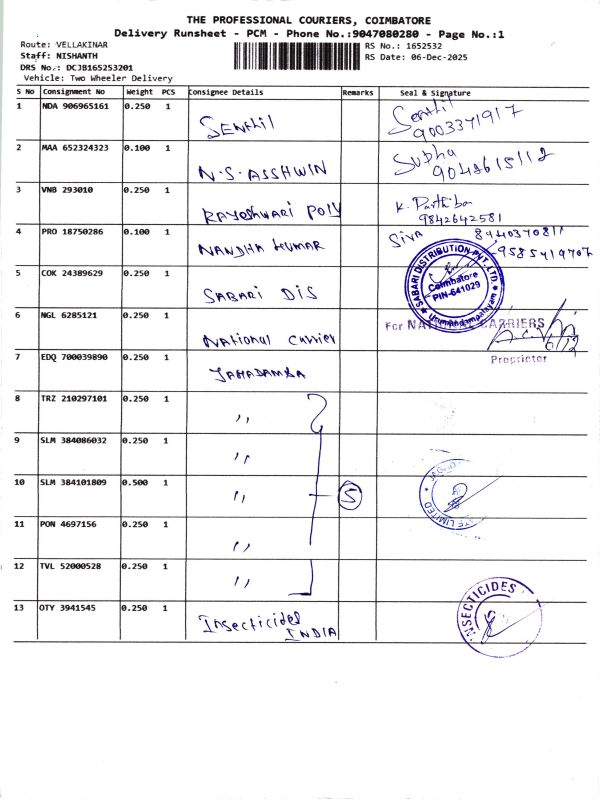 THE PROFESSIONAL COURIERS, COIMBATORE
Delivery Runsheet - PCM - Phone No.:9047080280 - Page No.:1
Route: VELLAKINAR
Staff: NISHANTH
DRS No.: DCJB165253201
Vehicle: Two Wheeler Delivery
RS No.: 1652532
RS Date: 06-Dec-2025
S No Consignment No Weight PCS Consignee Details Remarks Seal & Signature
1 NDA 906965161 0.250 1 SENthil Senthil
9003371917
2 MAA 652324323 0.100 1 N.S.ASSHWIN Subha
9042615112
3 VNB 293010 0.250 1 RAJESHWARI POLY K. Parthiban
9842642581
4 PRO 18750286 0.100 1 NANDHA KUMAR Siva 8940370811
9585419707
5 COK 24389629 0.250 1 SABARI DIS
SABARI DISTRIBUTION PVT. LTD.
Coimbatore
PIN-641029
6 NGL 6285121 0.250 1 National Carrier
For NATIONAL CARRIERS
Proprietor
7 EDQ 700039890 0.250 1 JAHADAMBA
8 TRZ 210297101 0.250 1 ,,
9 SLM 384086032 0.250 1 ,,
10 SLM 384101809 0.500 1 ,, 5
11 PON 4697156 0.250 1 ,,
12 TVL 52000528 0.250 1 ,,
13 OTY 3941545 0.250 1 Insecticides
INDIA
INSECTICIDES